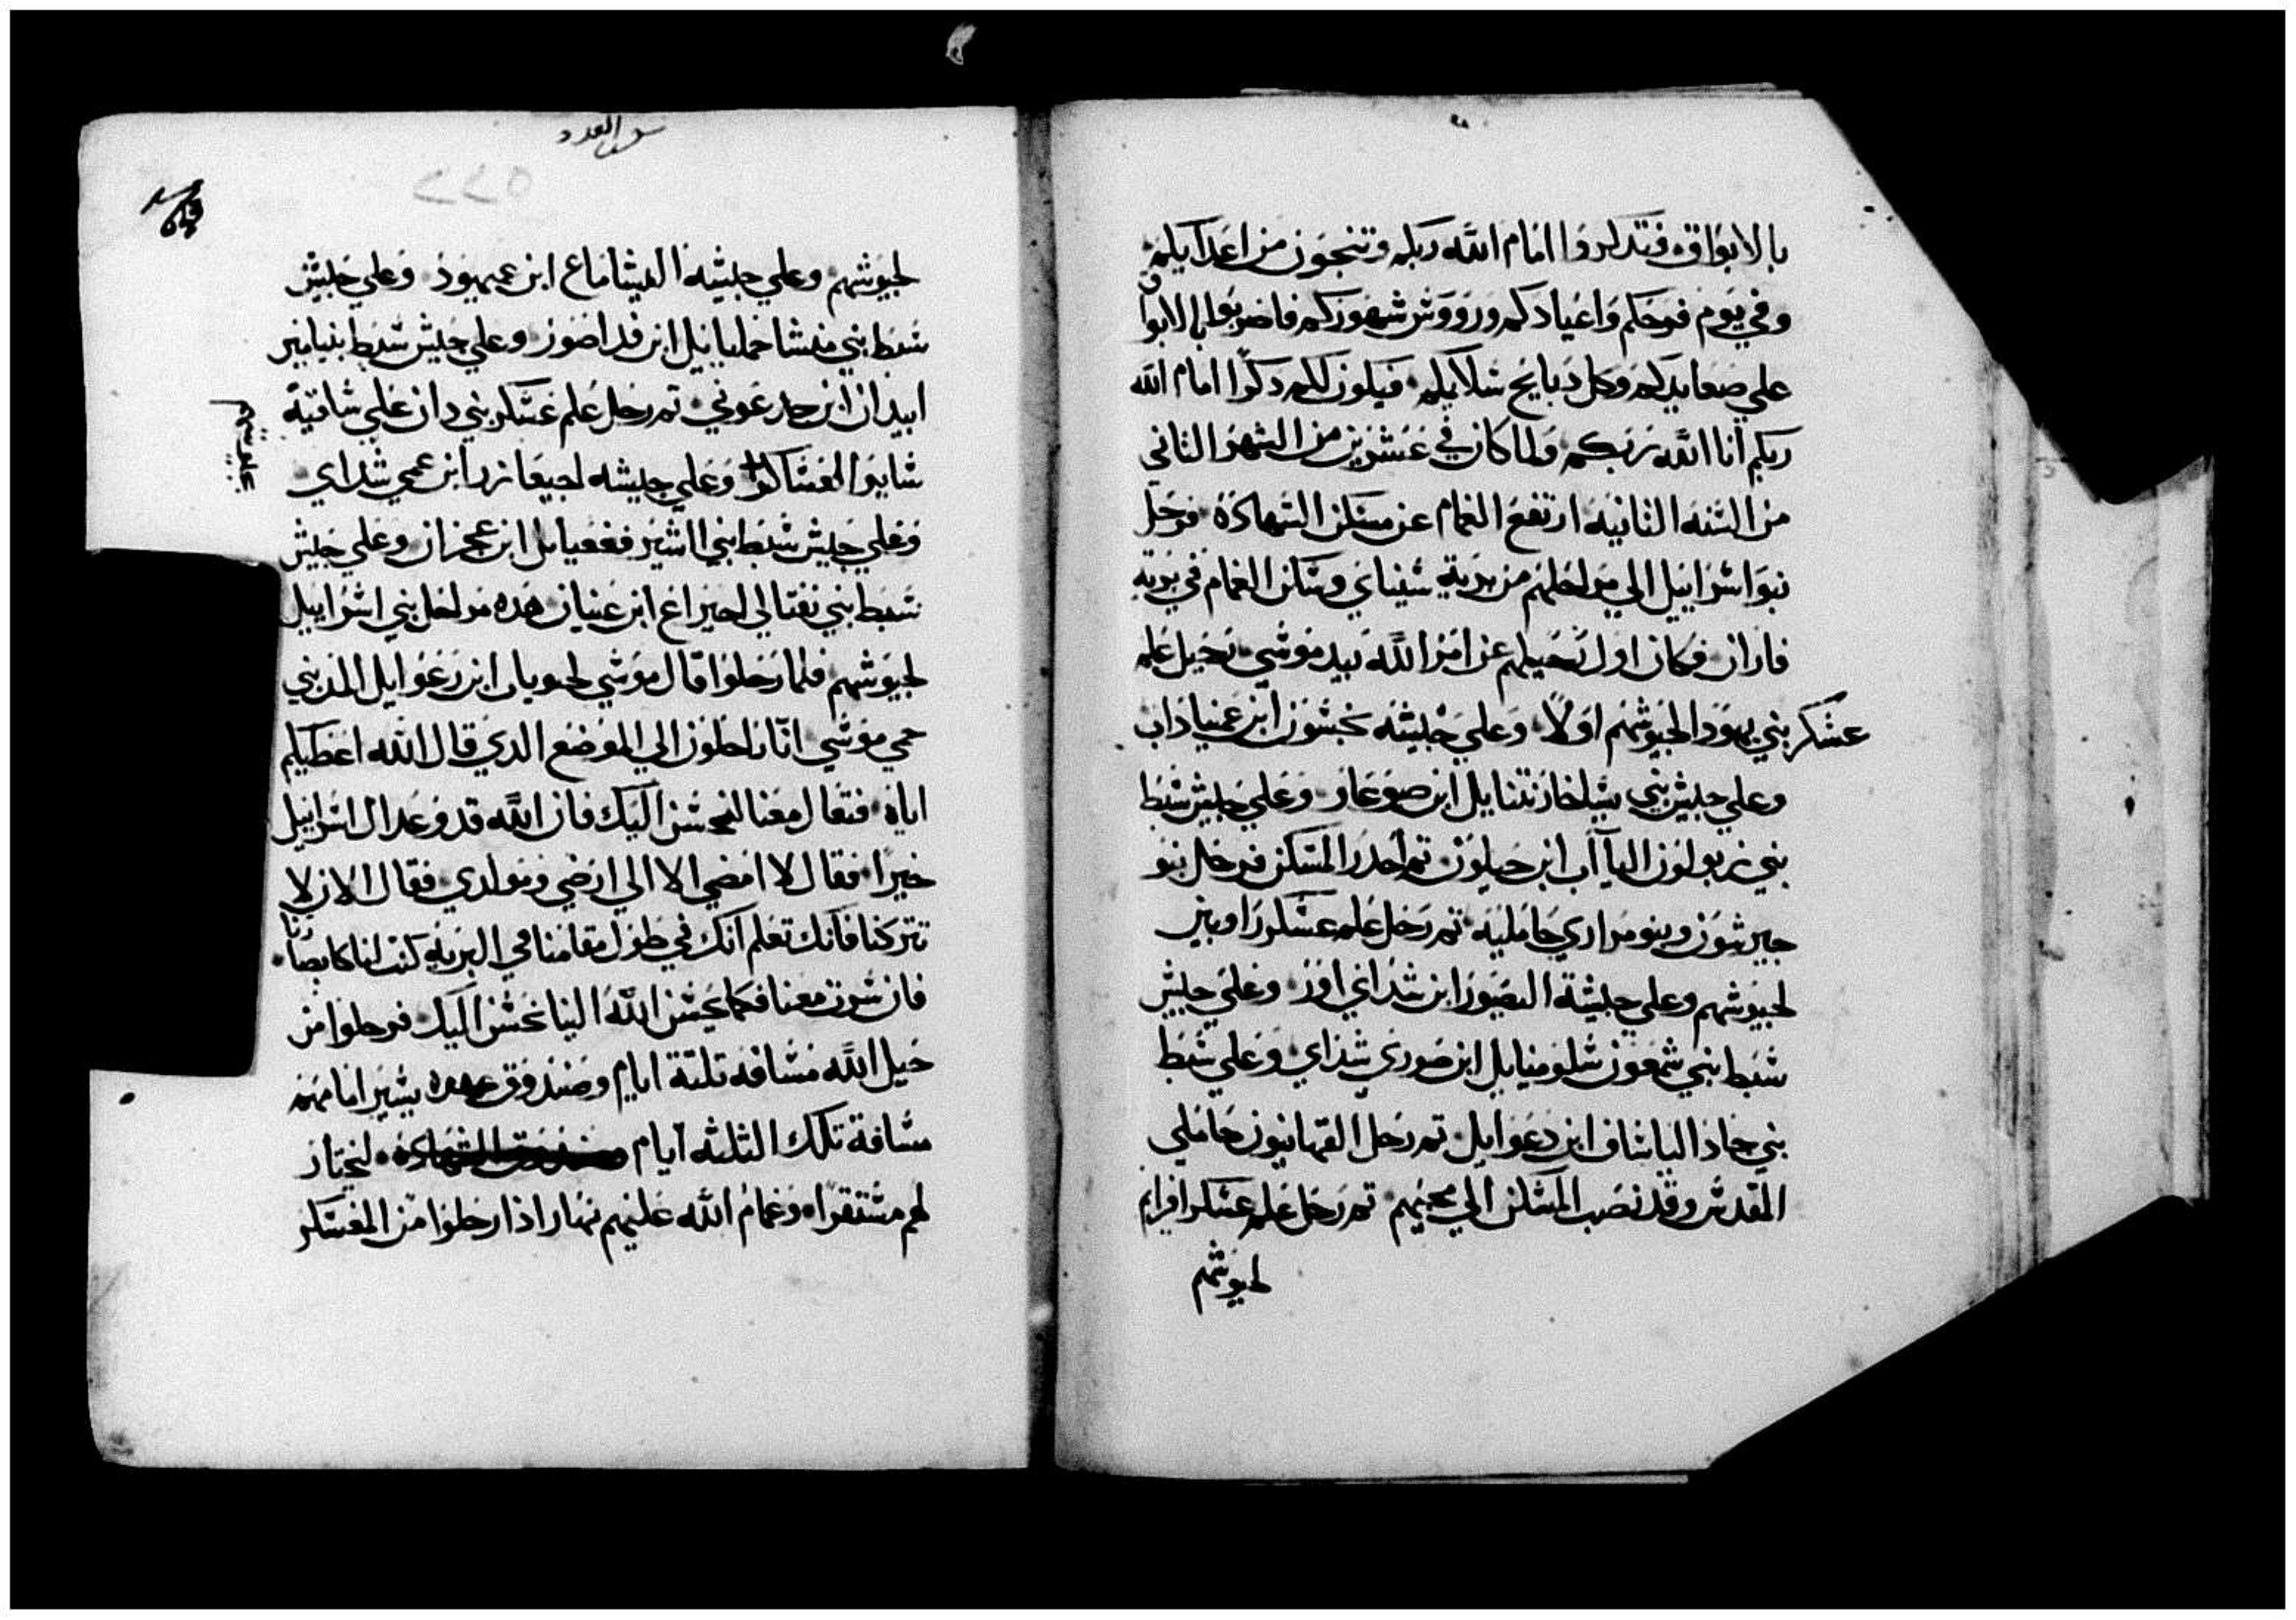 بالابواق فتدكروا امام الله ربكم وتنجون من اعدايكم
وفي يوم فرحكم واعيادكم ورووش شهوركم فاضربوا بالابواق
علي صعايدكم وكل دبايح سلايمكم فيكون لكم دكرا امام الله
ربكم انا الله ربكم ولما كان في عشرين من الشهر التاني
من السنه التانيه ارتفع الغمام عن مسكن الشهادة فرحل
بنو اسراييل الي مراحلهم من برية سيناي وسكن الغمام في برية
فاران فكان اول رحيلهم عن امر الله بيد موسي رحيل علم
عسكر بني يهودا لجيوشهم اولا وعلي جيشه نحشون ابن عميناداب
وعلي جيش بني يساخار نتنايل ابن صوعار وعلي جيش سبط
بني زبولون الياآب ابن حيلون تم احدر المسكن فرحل بنو
جيرشون وبنو مراري حامليه تم رحل علم عسكر راوبين
لجيوشهم وعلي جيشه اليصور ابن شداي اور وعلي جيش
سبط بني شمعون شلوميايل ابن صوري شداي وعلي سبط
بني جاد الياساف ابن دعوايل تم رحل القهاتيون حاملي
القدس وقد نصب المسكن الي مجيهم تم رحل علم عسكر افرايم
لجيوشهم
سفر العدد
٢٢٥
لجيوشهم وعلي جيشه اليشاماع ابن عميهود وعلي جيش
سبط بني منشا جمليايل ابن فداصور وعلي جيش سبط بنيامين
ابيدان ابن جدعوني تم رحل علم عسكر بني دان علي ساقية
ساير العساكر وعلي جيشه احيعازر ابن عمي شداي
وعلي جيش سبط بني اشير فغعيايل ابن عجران وعلي جيش
سبط بني نفتالي احيراع ابن عينان هده مراحل بني اسراييل
لجيوشهم فلما رحلوا قال موسي لحوباب ابن رعوايل المديني
حمي موسي انا راحلون الي الموضع الدي قال الله اعطيكم
اياه فتعال معنا لنحسن اليك فان الله قد وعد ال اسراييل
خيرا فقال لا امضي الا الي ارضي ومولدي فقال الان لا
تتركنا فانك تعلم انك في طول مقامنا في البرية كنت لنا كابصارنا
فان سرت معنا فكما يحسن الله الينا نحسن اليك فرحلوا من
جبل الله مسافه تلتة ايام وصندوق عهده يسير امامهم
مسافة تلك التلته ايام لنختار
لهم مستقرا وغمام الله عليهم نهارا اذا رحلوا من المعسكر